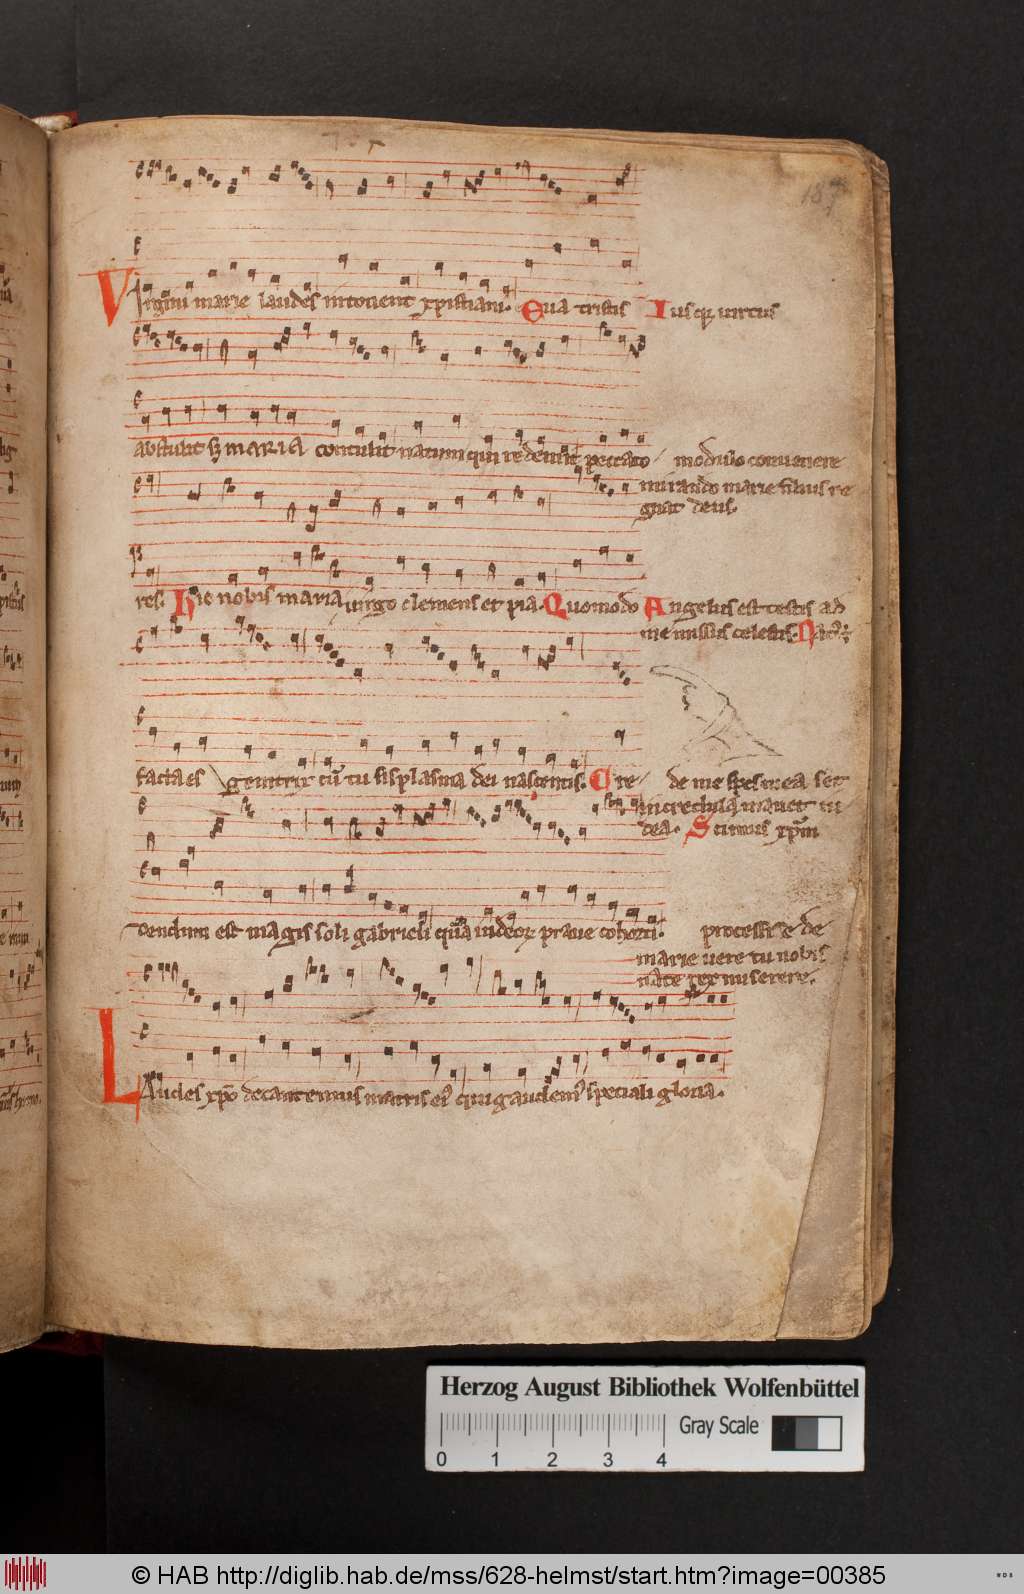 187
Virgini marie laudes intonent xpistiani. Eua tristis Ius qꝫ uirtus
abstulit sꝫ maria contulit natum qui redemit peccato modulo conuenere
mirando marie filius re
gnat deus.
res. Dic nobis maria uirgo clemens et pia. Quomodo Angelus est testis ad
me missus celestis.
facta es genitrix cū tu sis plasma dei nascentis. Cre de me spes mea set
in
dea. Scimus xpm
dendum est magis soli gabrieli qua iudeoꝝ praue cohorti. processisse de
marie uere tu nobis
nate rex miserere.
Laudes xpo decantemus matris ei' qui gaudem' speciali gloria.
Herzog August Bibliothek Wolfenbüttel
Gray Scale
0 1 2 3 4
© HAB http://diglib.hab.de/mss/628-helmst/start.htm?image=00385